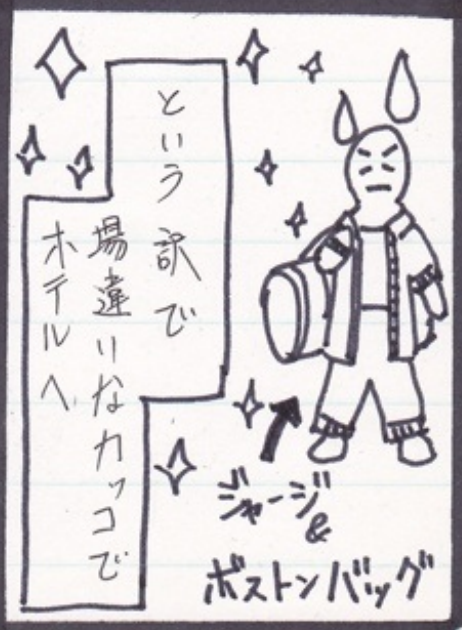 という訳で
場違いなカッコで
ホテルへ
ジャージ
&
ボストンバッグ